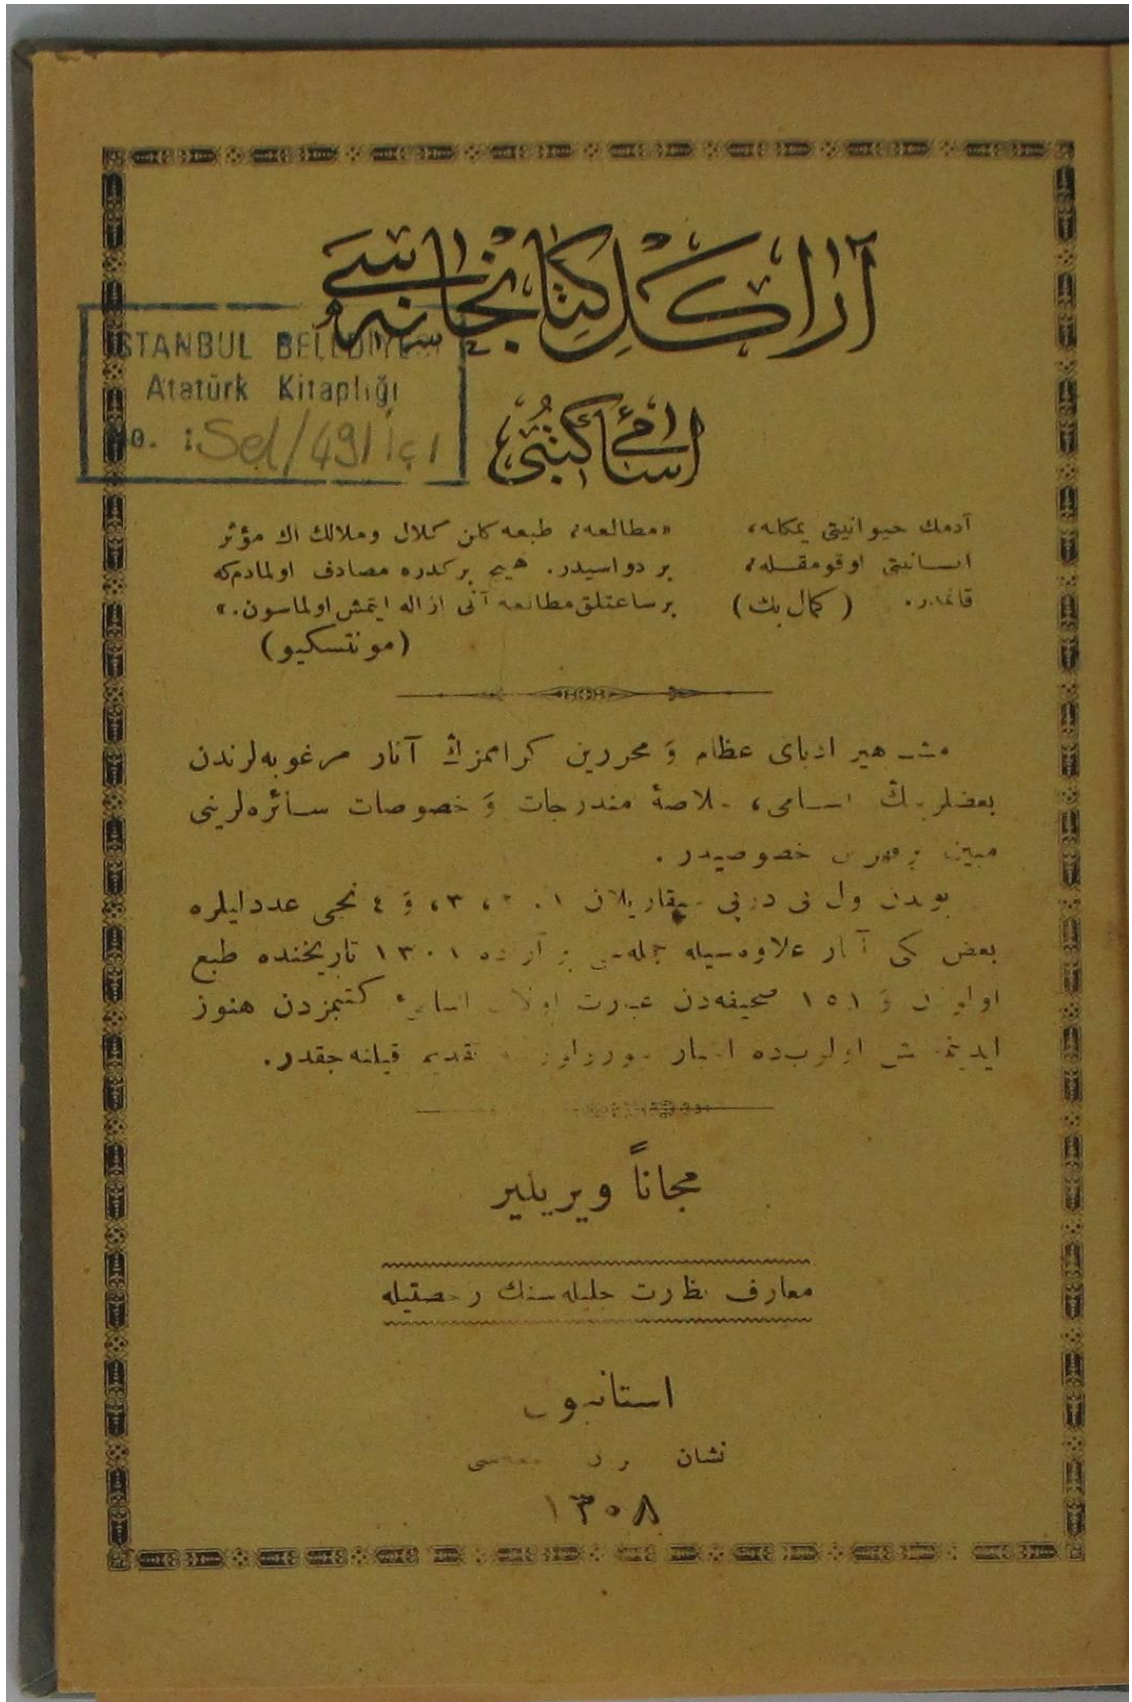 آراكل كتابخانه‌سى
ISTANBUL BELEDİYESİ
Atatürk Kitaplığı
No. : Sel/491 İç1
اسامئ كتبى
آدمك حيوانيتى يمكله،
انسانيتى اوقومقله،
قائمدر. (كمال بك)
«مطالعه، طبعه كلن كلال و ملالك اك مؤثر
بر دواسيدر. هيچ بر كدره مصادف اولمادم كه
بر ساعتلق مطالعه آنى ازاله ايتمش اولماسون.»
(مونتسكيو)
مشاهير ادباى عظام وَ محررين كراممزڭ آثار مرغوبه‌لرندن
بعضلرينڭ اسامى، خلاصهٔ مندرجات وَ خصوصات سائره‌لرينى
مبين بر فهرس خصوصيدر .
بوندن اول پى درپى چيقاريلان ١، ٢، ٣، وَ ٤ نجى عددليلره
بعض يكى آثار علاوه‌سيله جمله‌سى بر آراده ١٣٠١ تاريخنده طبع
اولونان وَ ١٥١ صحيفه‌دن عبارت اولان اسامئ كتبمزدن هنوز
ايدينمامش اولوب‌ده تقديم قيلنه‌جقدر.
مجاناً ويريلير
معارف نظارت جليله‌سنك رخصتيله
استانبول
نشان مطبعه‌سى
١٣٠٨